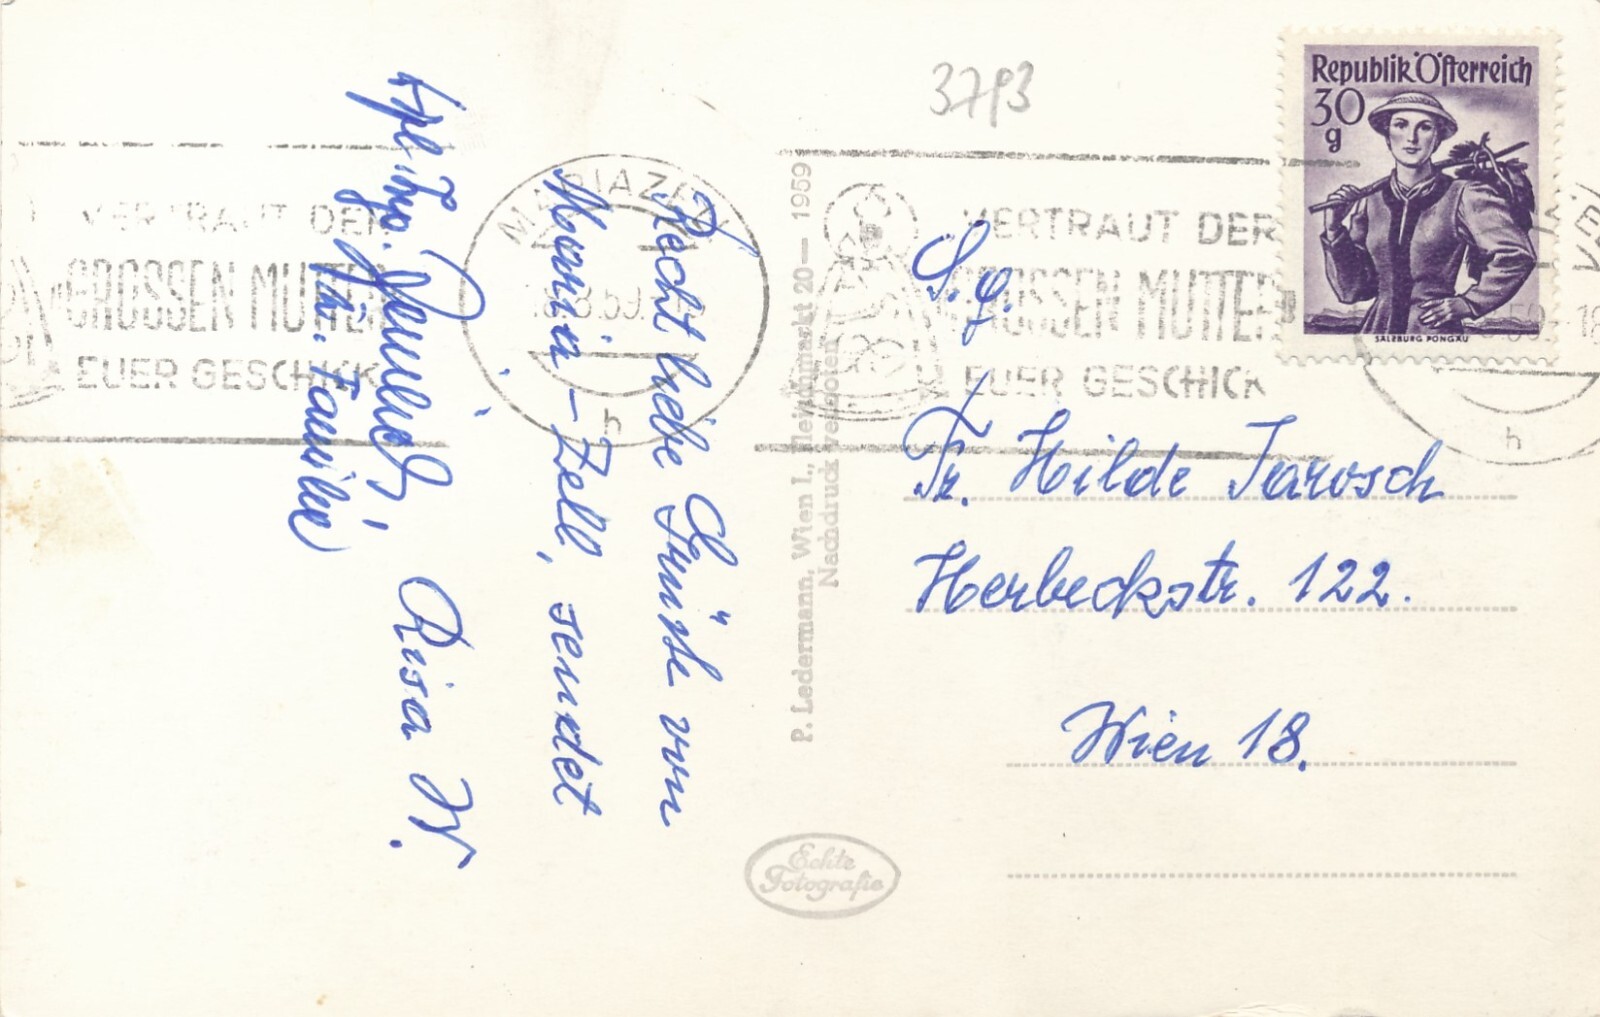 Recht liebe Grüsse von
Maria-Zell, sendet
Risa W.
Familie)
3793
Republik Österreich
30
g
SALZBURG PONGAU
MARIAZELL
h
VERTRAUT DER
GROSSEN MUTTER
EUER GESCHICK
VERTRAUT DER
GROSSEN MUTTER
EUER GESCHICK
h
P. Ledermann, Wien I., Fleischmarkt 20 — 1959
Nachdruck verboten
Fr. Hilde Jarosch
Herbeckstr. 122.
Wien 18.
Echte
Fotografie